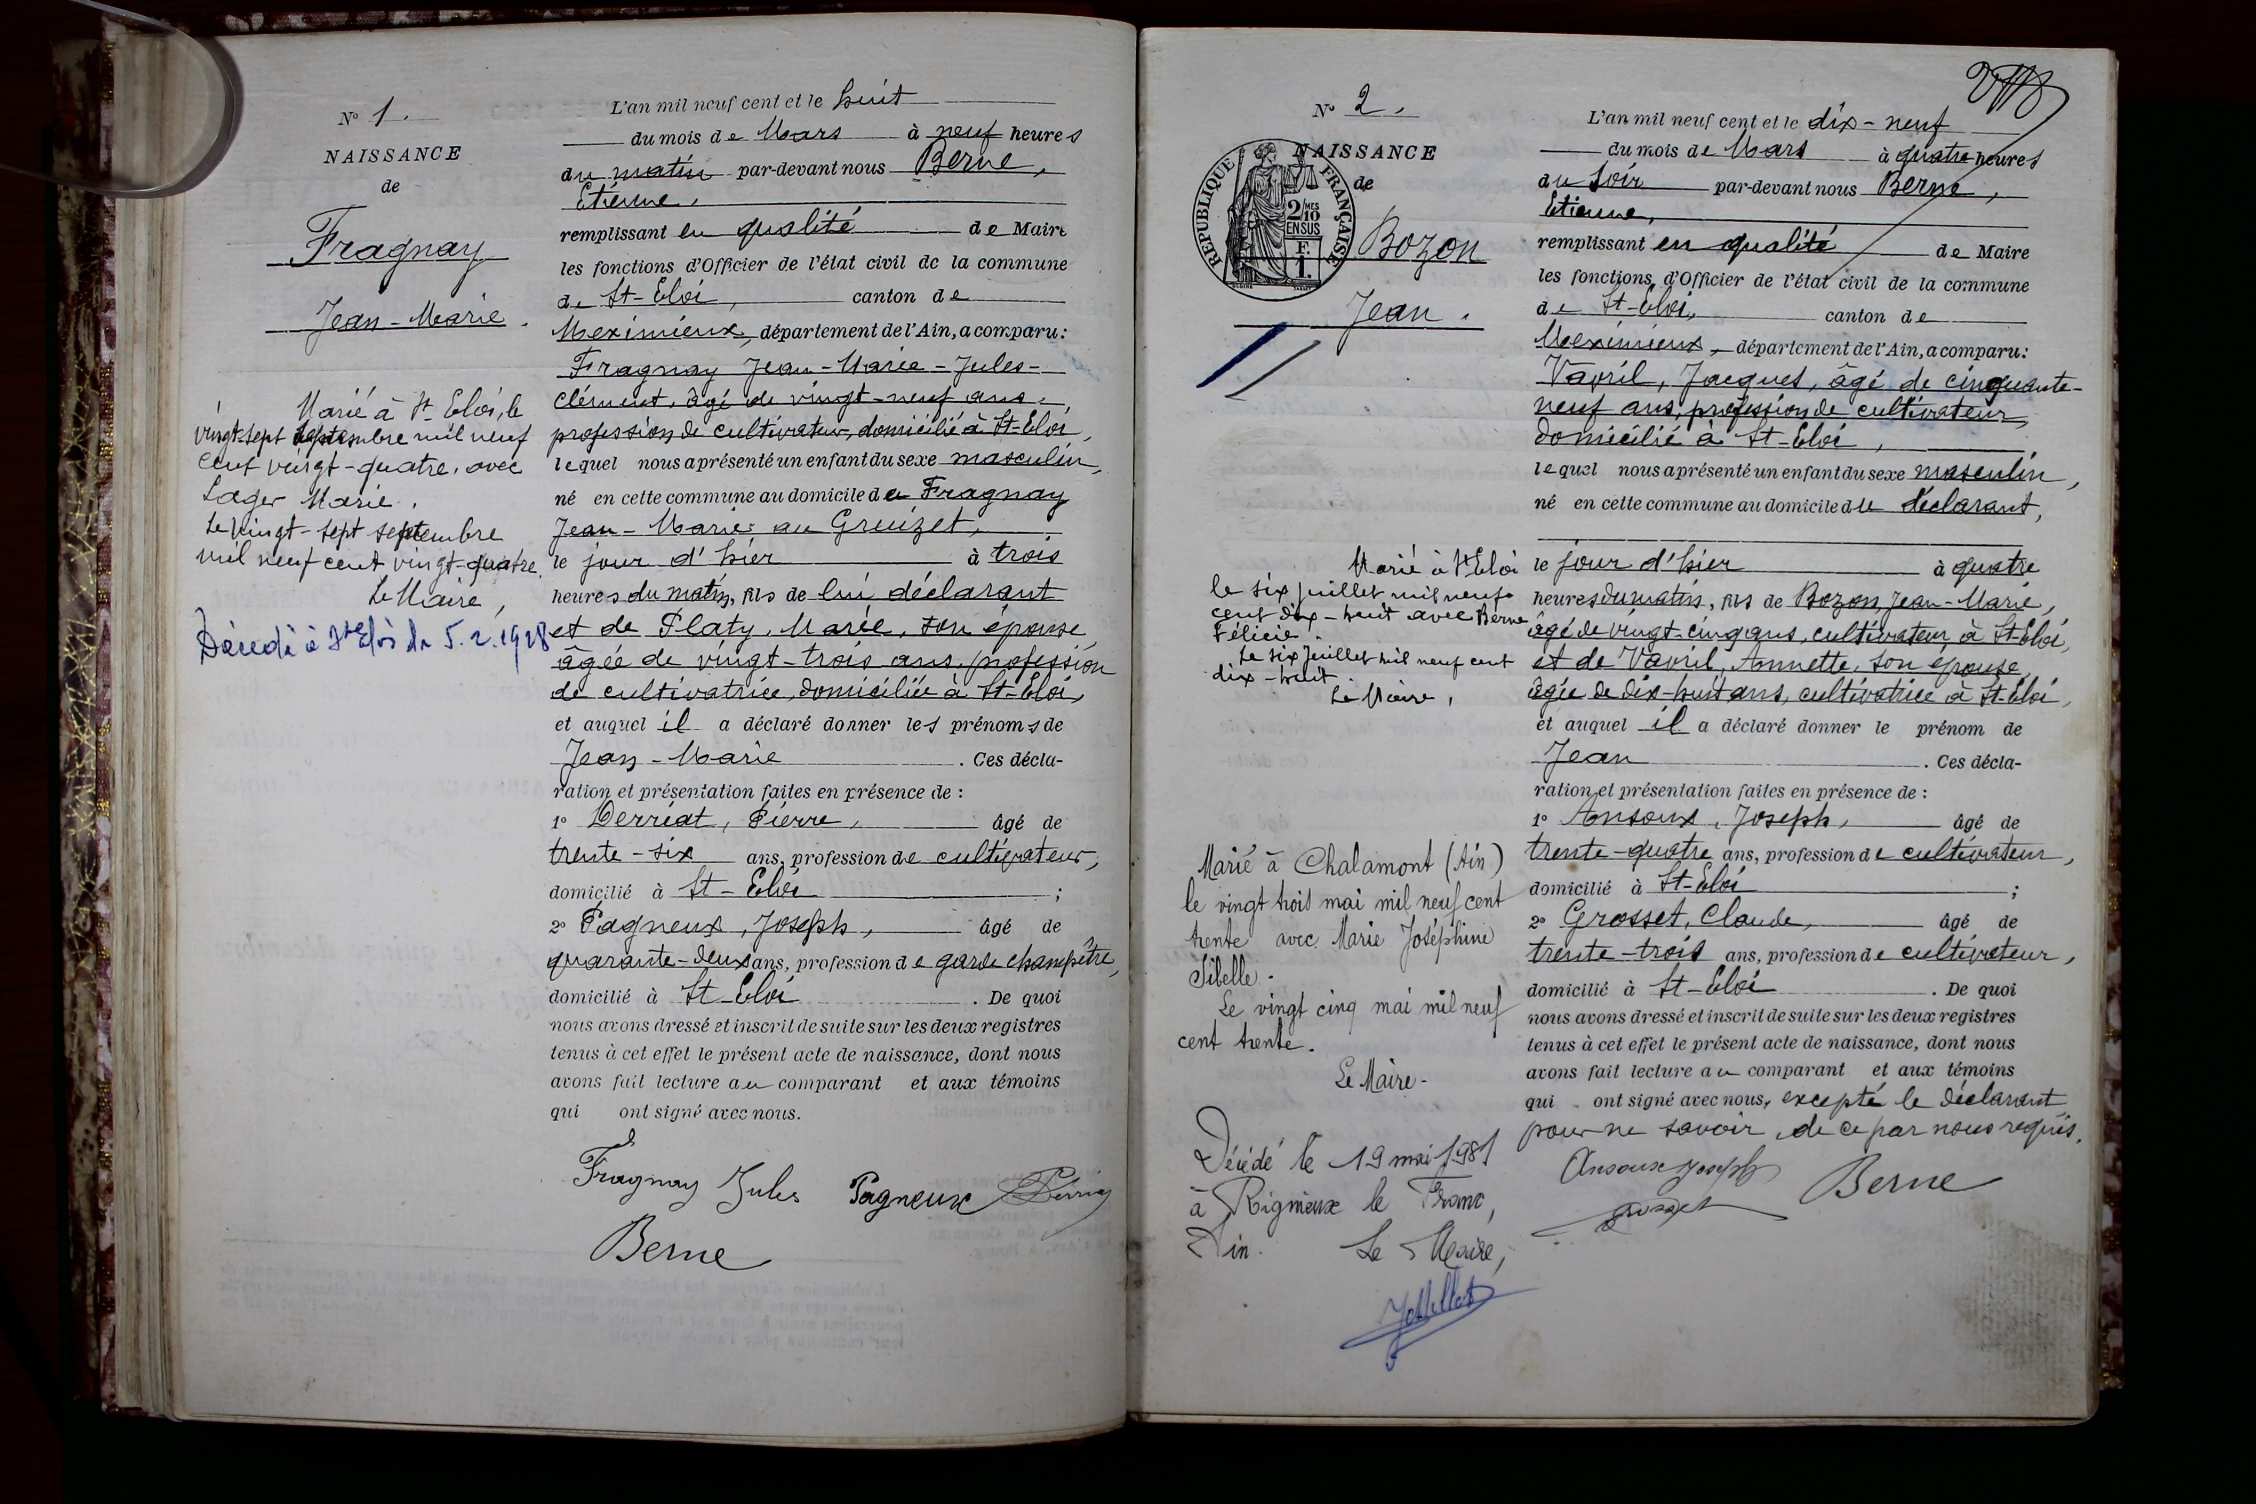 N° 1.
NAISSANCE
de
Fragnay
Jean-Marie.
Marié à St Eloi, le
vingt-sept septembre mil neuf
cent vingt-quatre, avec
Lager Marie.
Le vingt-sept septembre
mil neuf cent vingt-quatre.
Le Maire,
Décédé à St Eloi le 5.2.19
L'an mil neuf cent et le huit
du mois de Mars à neuf heures
du matin par-devant nous Berne,
Etienne,
remplissant en qualité de Maire
les fonctions d'Officier de l'état civil de la commune
de St-Eloi, canton de
Meximieux, département de l'Ain, a comparu:
Fragnay Jean-Marie-Jules-
clément, âgé de vingt-neuf ans,
profession de cultivateur, domicilié à St-Eloi,
lequel nous a présenté un enfant du sexe masculin,
né en cette commune au domicile de Fragnay
Jean-Marie au Gruizet,
le jour d'hier à trois
heures du matin, fils de lui déclarant
et de Platy, Marie, son épouse
âgée de vingt-trois ans, profession
de cultivatrice, domiciliée à St-Eloi,
et auquel il a déclaré donner les prénoms de
Jean-Marie. Ces décla-
ration et présentation faites en présence de :
1° Derriat, Pierre, âgé de
trente-six ans, profession de cultivateur,
domicilié à St-Eloi ;
2° Pagneux, Joseph, âgé de
quarante-deux ans, profession de garde champêtre,
domicilié à St-Eloi. De quoi
nous avons dressé et inscrit de suite sur les deux registres
tenus à cet effet le présent acte de naissance, dont nous
avons fait lecture au comparant et aux témoins
qui ont signé avec nous.
Fragnay Jules Pagneux
Berne
N° 2.
NAISSANCE
de
REPUBLIQUE FRANÇAISE
2/10 MES
EN SUS
F.
1.
Bozon
Jean.
Marié à St Eloi
le six juillet mil neuf
cent dix-huit avec Berne
Félicie.
Le six juillet mil neuf cent
dix-huit.
Le Maire,
Marié à Chalamont (Ain)
le vingt trois mai mil neuf cent
trente avec Marie Joséphine
Sibelle.
Le vingt cinq mai mil neuf
cent trente.
Le Maire-
Décédé le 19 mai 1981
à Rignieux le Franc,
Ain. Le Maire,
L'an mil neuf cent et le dix-neuf
du mois de Mars à quatre heures
du soir par-devant nous Berne,
Etienne,
remplissant en qualité de Maire
les fonctions d'Officier de l'état civil de la commune
de St-Eloi, canton de
Meximieux, département de l'Ain, a comparu:
Vavril, Jacques, âgé de cinquante-
neuf ans, profession de cultivateur,
domicilié à St-Eloi,
lequel nous a présenté un enfant du sexe masculin,
né en cette commune au domicile du déclarant,
le jour d'hier à quatre
heures du matin, fils de Bozon, Jean-Marie,
âgé de vingt-cinq ans, cultivateur à St-Eloi,
et de Vavril, Annette, son épouse,
âgée de dix-huit ans, cultivatrice à St-Eloi,
et auquel il a déclaré donner le prénom de
Jean. Ces décla-
ration et présentation faites en présence de :
1° Ansoux, Joseph, âgé de
trente-quatre ans, profession de cultivateur,
domicilié à St-Eloi ;
2° Grosset, Claude, âgé de
trente-trois ans, profession de cultivateur,
domicilié à St-Eloi. De quoi
nous avons dressé et inscrit de suite sur les deux registres
tenus à cet effet le présent acte de naissance, dont nous
avons fait lecture au comparant et aux témoins
qui ont signé avec nous, excepté le déclarant
pour ne savoir, de ce par nous requis.
Ansoux Joseph Berne